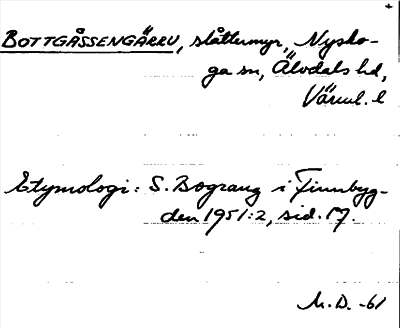 BOTTGÅSSENGÄRRU, slåttermyr, Nysko-
ga sn, Älvdals hd,
Värml. l
Etymologi: S. Bograng i Finnbyg-
den 1951:2, sid. 17.
M.D. -61